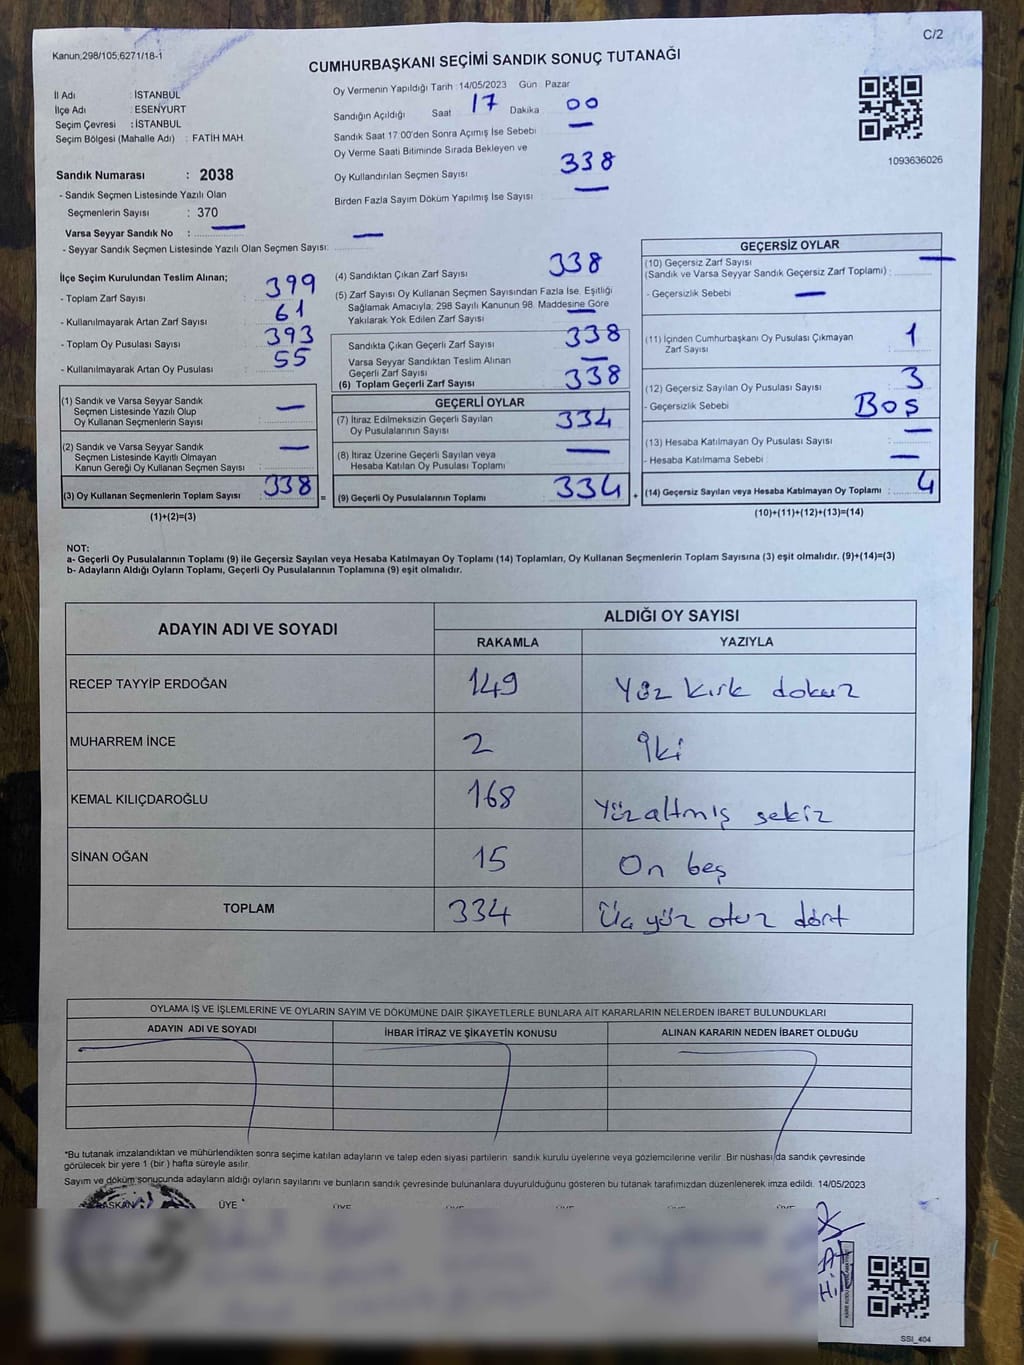 Kanun;298/105,6271/18-1
C/2
CUMHURBAŞKANI SEÇİMİ SANDIK SONUÇ TUTANAĞI
İl Adı : İSTANBUL
İlçe Adı : ESENYURT
Seçim Çevresi : İSTANBUL
Seçim Bölgesi (Mahalle Adı) : FATİH MAH
Sandık Numarası : 2038
- Sandık Seçmen Listesinde Yazılı Olan
Seçmenlerin Sayısı : 370
Varsa Seyyar Sandık No : —
- Seyyar Sandık Seçmen Listesinde Yazılı Olan Seçmen Sayısı: —
Oy Vermenin Yapıldığı Tarih : 14/05/2023 Gün Pazar
Sandığın Açıldığı Saat 17 Dakika 00
Sandık Saat 17:00'den Sonra Açmış İse Sebebi —
Oy Verme Saati Bitiminde Sırada Bekleyen ve
Oy Kullandırılan Seçmen Sayısı 338
Birden Fazla Sayım Döküm Yapılmış İse Sayısı —
1093636026
İlçe Seçim Kurulundan Teslim Alınan;
- Toplam Zarf Sayısı : 399
- Kullanılmayarak Artan Zarf Sayısı : 61
- Toplam Oy Pusulası Sayısı : 393
- Kullanılmayarak Artan Oy Pusulası : 55
(1) Sandık ve Varsa Seyyar Sandık
Seçmen Listesinde Yazılı Olup
Oy Kullanan Seçmenlerin Sayısı : —
(2) Sandık ve Varsa Seyyar Sandık
Seçmen Listesinde Kayıtlı Olmayan
Kanun Gereği Oy Kullanan Seçmen Sayısı : —
(3) Oy Kullanan Seçmenlerin Toplam Sayısı : 338 =
(1)+(2)=(3)
(4) Sandıktan Çıkan Zarf Sayısı 338
(5) Zarf Sayısı Oy Kullanan Seçmen Sayısından Fazla İse, Eşitliği
Sağlamak Amacıyla; 298 Sayılı Kanunun 98. Maddesine Göre
Yakılarak Yok Edilen Zarf Sayısı —
Sandıkta Çıkan Geçerli Zarf Sayısı 338
Varsa Seyyar Sandıktan Teslim Alınan
Geçerli Zarf Sayısı —
(6) Toplam Geçerli Zarf Sayısı 338
GEÇERLİ OYLAR
(7) İtiraz Edilmeksizin Geçerli Sayılan
Oy Pusulalarının Sayısı 334
(8) İtiraz Üzerine Geçerli Sayılan veya
Hesaba Katılan Oy Pusulası Toplamı —
(9) Geçerli Oy Pusulalarının Toplamı 334 +
GEÇERSİZ OYLAR
(10) Geçersiz Zarf Sayısı —
(Sandık ve Varsa Seyyar Sandık Geçersiz Zarf Toplamı) :
- Geçersizlik Sebebi : —
(11) İçinden Cumhurbaşkanı Oy Pusulası Çıkmayan
Zarf Sayısı : 1
(12) Geçersiz Sayılan Oy Pusulası Sayısı : 3
- Geçersizlik Sebebi : Boş
(13) Hesaba Katılmayan Oy Pusulası Sayısı : —
- Hesaba Katılmama Sebebi : —
(14) Geçersiz Sayılan veya Hesaba Katılmayan Oy Toplamı : 4
(10)+(11)+(12)+(13)=(14)
NOT:
a- Geçerli Oy Pusulalarının Toplamı (9) ile Geçersiz Sayılan veya Hesaba Katılmayan Oy Toplamı (14) Toplamları, Oy Kullanan Seçmenlerin Toplam Sayısına (3) eşit olmalıdır. (9)+(14)=(3)
b- Adayların Aldığı Oyların Toplamı, Geçerli Oy Pusulalarının Toplamına (9) eşit olmalıdır.
ADAYIN ADI VE SOYADI
ALDIĞI OY SAYISI
RAKAMLA YAZIYLA
RECEP TAYYİP ERDOĞAN 149 Yüz kırk dokuz
MUHARREM İNCE 2 İki
KEMAL KILIÇDAROĞLU 168 Yüz altmış sekiz
SİNAN OĞAN 15 On beş
TOPLAM 334 Üç yüz otuz dört
OYLAMA İŞ VE İŞLEMLERİNE VE OYLARIN SAYIM VE DÖKÜMÜNE DAİR ŞİKAYETLERLE BUNLARA AİT KARARLARIN NELERDEN İBARET BULUNDUKLARI
ADAYIN ADI VE SOYADI İHBAR İTİRAZ VE ŞİKAYETİN KONUSU ALINAN KARARIN NEDEN İBARET OLDUĞU
*Bu tutanak imzalandıktan ve mühürlendikten sonra seçime katılan adayların ve talep eden siyasi partilerin sandık kurulu üyelerine veya gözlemcilerine verilir. Bir nüshası da sandık çevresinde
görülecek bir yere 1 (bir ) hafta süreyle asılır.
Sayım ve döküm sonucunda adayların aldığı oyların sayılarını ve bunların sandık çevresinde bulunanlara duyurulduğunu gösteren bu tutanak tarafımızdan düzenlenerek imza edildi. 14/05/2023
BAŞKAN ÜYE ÜYE ÜYE ÜYE ÜYE ÜYE
SSI_404